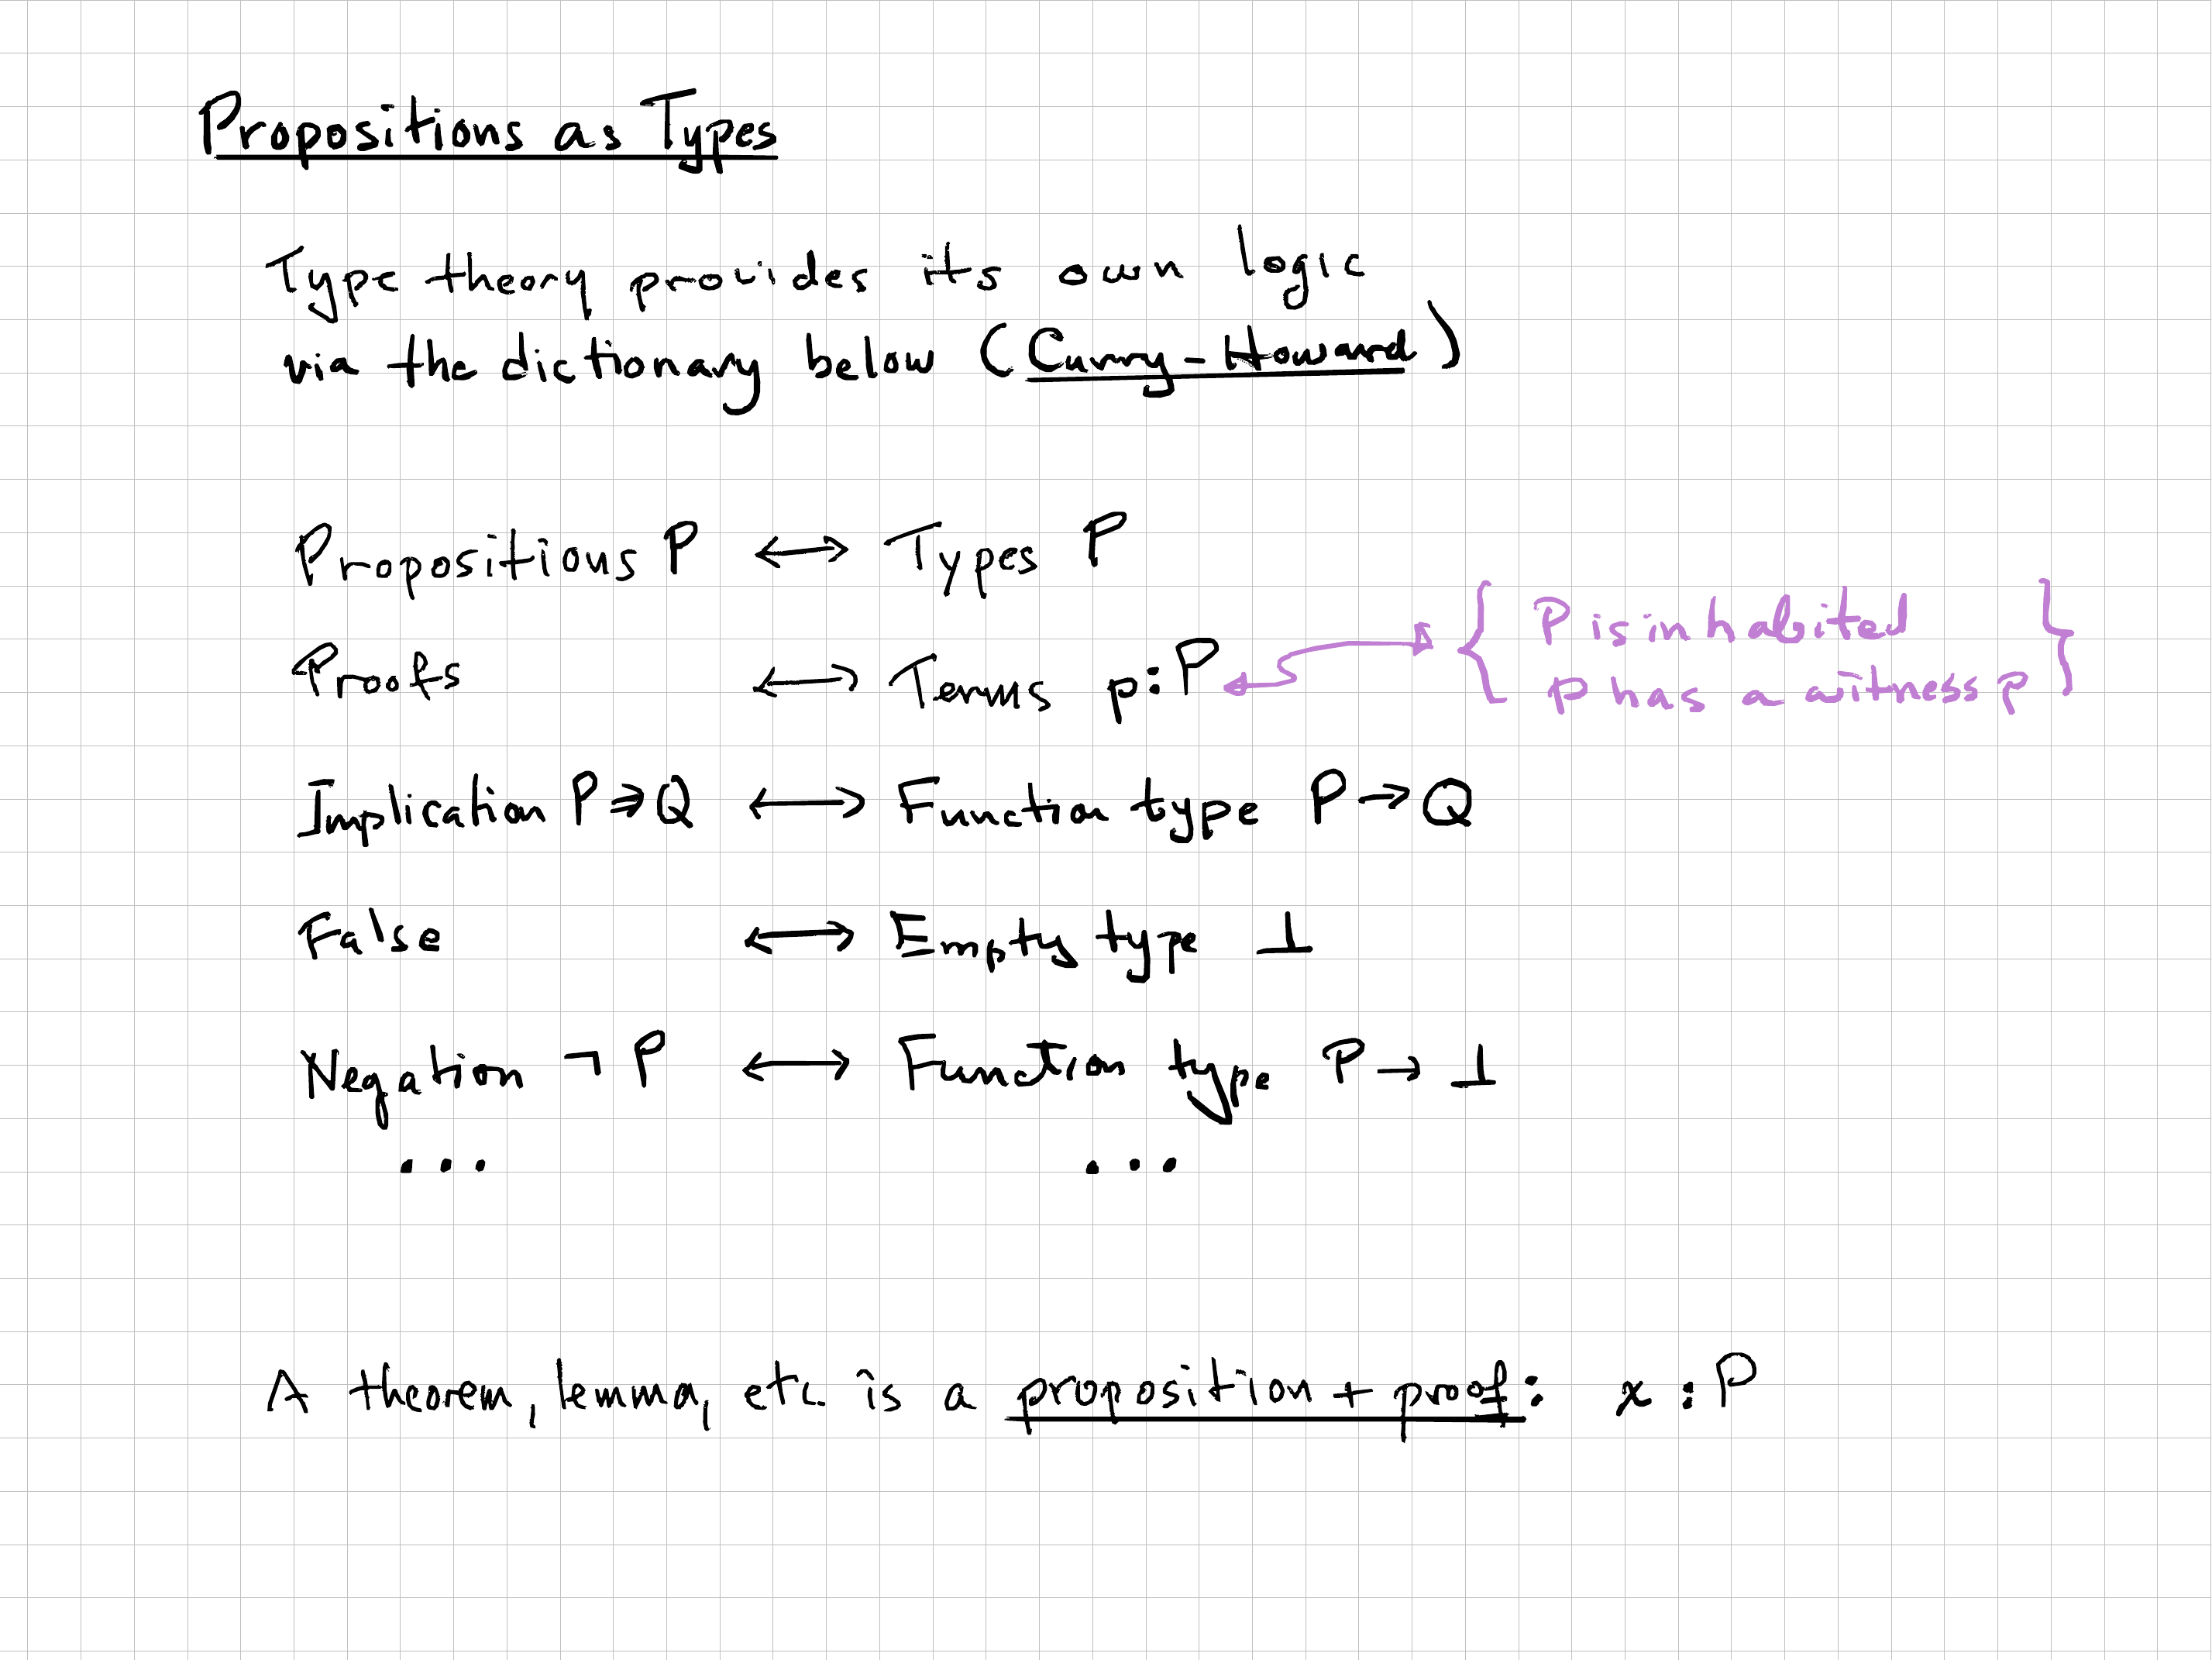 Propositions as Types
Type theory provides its own logic
via the dictionary below (Curry-Howard)
Propositions P ↔ Types P
Proofs ↔ Terms p:P ↔ { P is inhabited
P has a witness p }
Implication P⇒Q ↔ Function type P→Q
False ↔ Empty type ⊥
Negation ¬P ↔ Function type P→⊥
... ...
A theorem, lemma, etc. is a proposition + proof: x:P